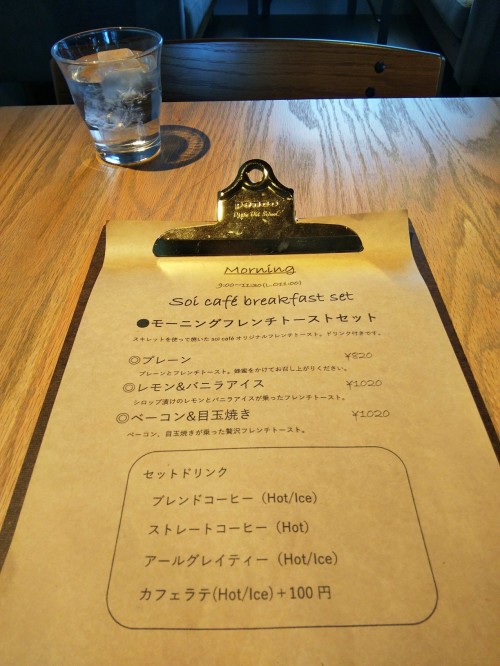 Morning
9:00~11:30(L.O11:00)
Soi café breakfast set
●モーニングフレンチトーストセット
スキレットを使って焼いた soi café オリジナルフレンチトースト。ドリンク付きです。
◎プレーン ¥820
プレーンとフレンチトースト。蜂蜜をかけてお召し上がりください。
◎レモン&バニラアイス ¥1020
シロップ漬けのレモンとバニラアイスが乗ったフレンチトースト。
◎ベーコン&目玉焼き ¥1020
ベーコン、目玉焼きが乗った贅沢フレンチトースト。
セットドリンク
ブレンドコーヒー（Hot/Ice）
ストレートコーヒー（Hot）
アールグレイティー（Hot/Ice）
カフェラテ(Hot/Ice)＋100 円